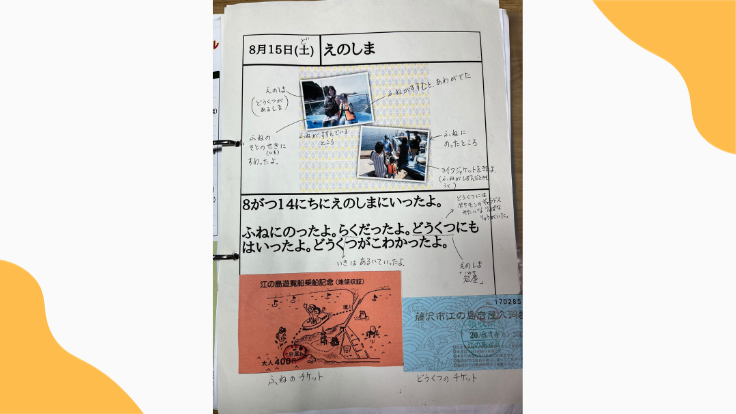 8月15日(土)
ど
えのしま
えのしま
(どうくつが
あるしま)
ふねがすすむと、あわがでた
ふねの
そとのせきに
すわったよ。
ふねがすすんでいる
ところ
ふねに
のったところ
ライフジャケットをきたよ
8がつ14にちにえのしまにいったよ。
ふねにのったよ。らくだったよ。どうくつにも
はいったよ。どうくつがこわかったよ。
どうくつには
いきはあるいていったよ
えのしま
江の島遊覧船乗船記念(兼領収証)
大人400円
No 170285
藤沢市江の島岩屋
ふねのチケット
どうくつのチケット